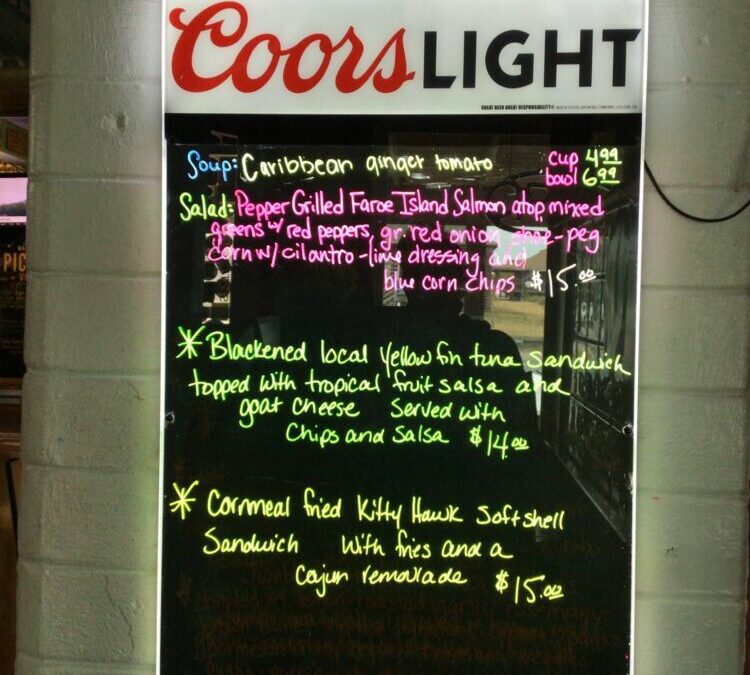 Coors LIGHT
GREAT BEER GREAT RESPONSIBILITY®
Soup: Caribbean ginger tomato
cup 4.99
bowl 6.99
Salad: Pepper Grilled Faroe Island Salmon atop mixed
greens w/ red peppers, gr. red onion, shoe-peg
corn w/ cilantro-lime dressing and
blue corn chips $15.00
* Blackened local yellowfin tuna sandwich
topped with tropical fruit salsa and
goat cheese Served with
Chips and Salsa $14.00
* Cornmeal fried Kitty Hawk Softshell
Sandwich With fries and a
Cajun remoulade $15.00
PIC